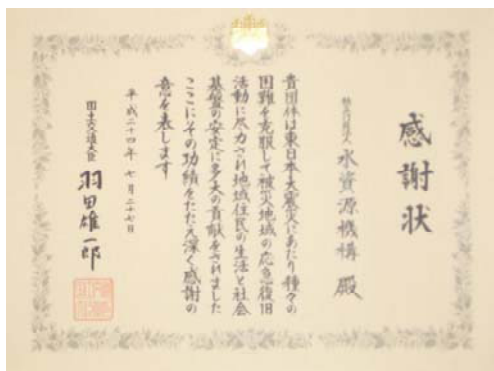 感謝状
独立行政法人 水資源機構 殿
貴団体は東日本大震災にあたり種々の
困難を克服して被災地域の応急復旧
活動に尽力され地域住民の生活と社会
基盤の安定に多大の貢献をされました
ここにその功績をたたえ深く感謝の
意を表します
平成二十四年 七月 二十七日
国土交通大臣 羽田雄一郎